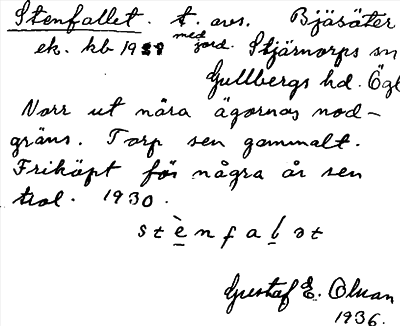 Stenfallet. t. avs. Bjäsäter
ek. kb 19 med jord. Stjärnorps sn
Gullbergs hd. Ögl
Norr ut nära ägornas nod-
gräns. Torp sen gammalt.
Friköpt för några år sen
trol. 1930.
s t è n f a l ə t
Gustaf E. Olsson
1936.